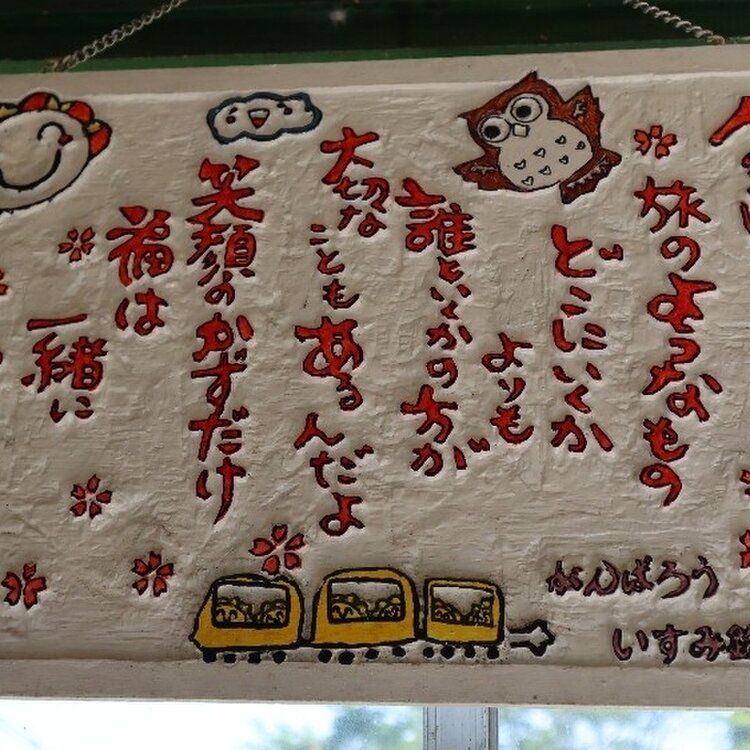 旅のようなもの
どこにいくか
よりも
誰といくかの方が
大切な
ことも
あるんだよ
笑顔のかずだけ
福は
一緒に
がんばろう
いすみ鉄